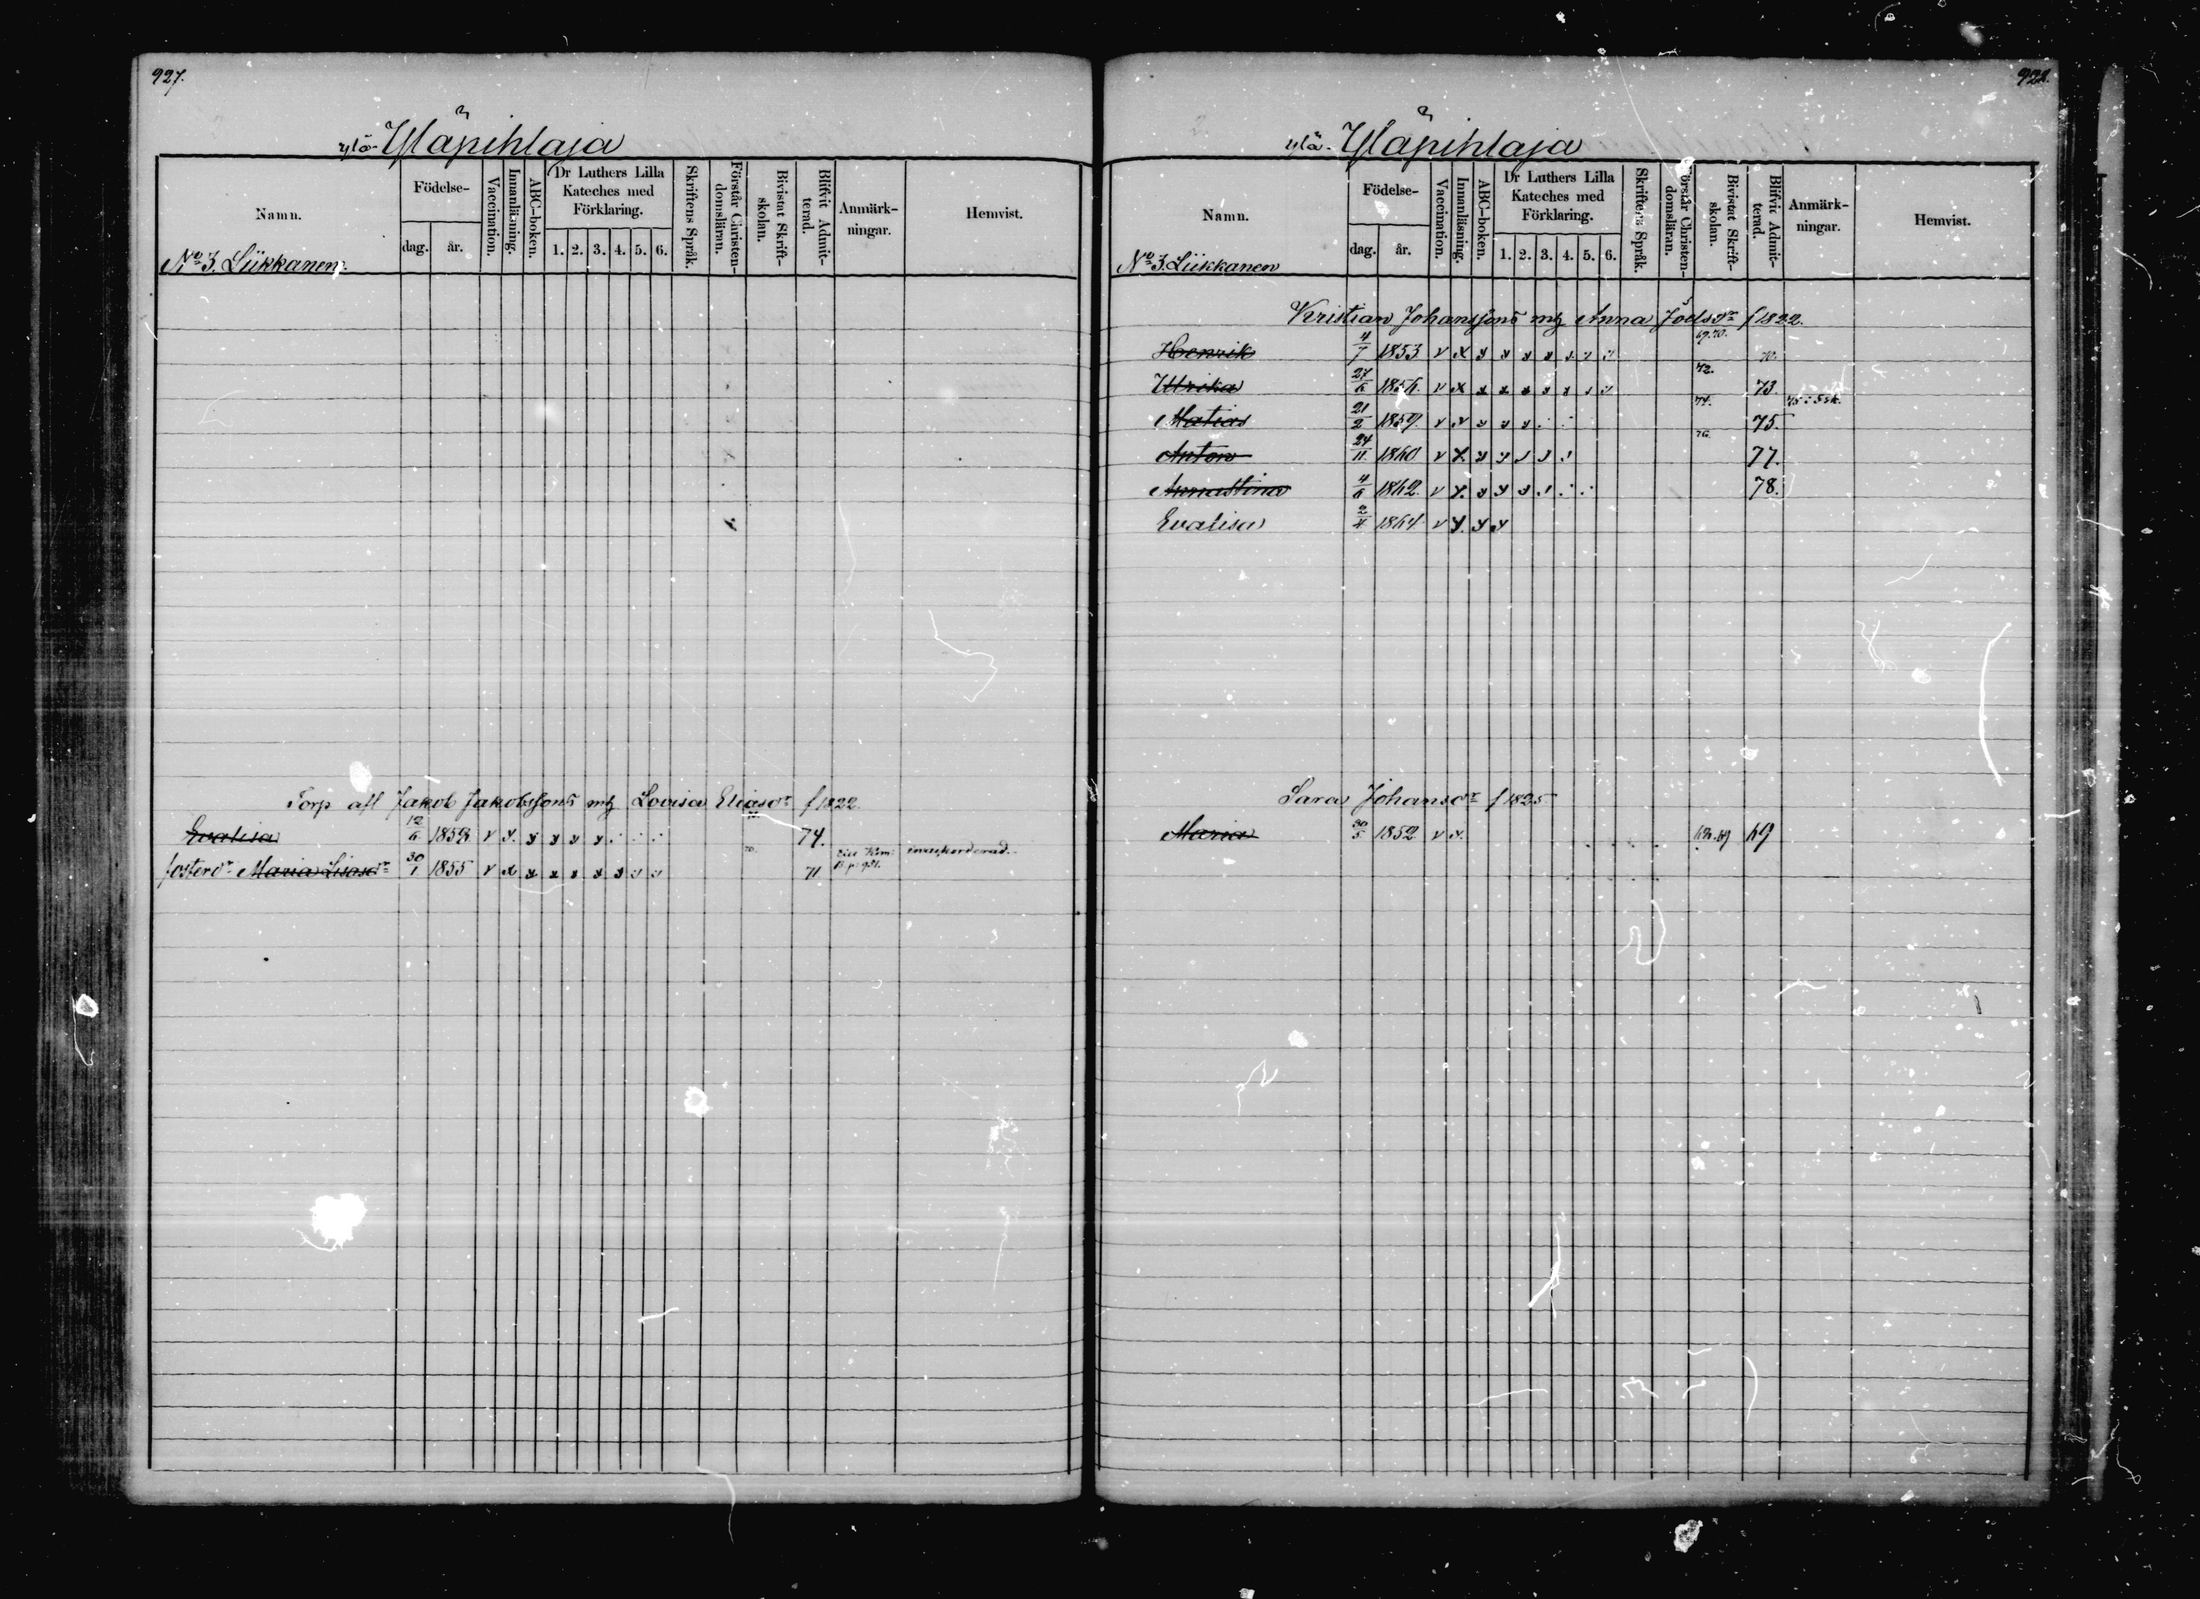 927.
ylä- Yläpihlaja
Namn.
Födelse-
dag. år.
Vaccination.
Innanläsning.
ABC-boken.
Dr Luthers Lilla Kateches med Förklaring.
1. 2. 3. 4. 5. 6.
Skriftens Språk.
Förstår Christendomsläran.
Bivistat Skriftskolan.
Blifvit Admitterad.
Anmärkningar.
Hemvist.
No 3. Liikkanen.
Torp afl Jakob Jakobssons Louisa Eliasdr f 1822.
Evalisa 12/6 1858 v 74.
fosterdr Maria Lisasdr 30/1 1855 v x 70. 71
928.
ylä- Yläpihlaja
Namn.
Födelse-
dag. år.
Vaccination.
Innanläsning.
ABC-boken.
Dr Luthers Lilla Kateches med Förklaring.
1. 2. 3. 4. 5. 6.
Skriftens Språk.
Förstår Christendomsläran.
Bivistat Skriftskolan.
Blifvit Admitterad.
Anmärkningar.
Hemvist.
No 3. Liikkanen
Kristian Johanssons Anna Joelsdr f 1822.
Henrik 4/7 1853 v x 69.70. 70.
Ulrika 27/6 1856. v x 72. 73.
Matias 21/2 1859. v 74. 75.
Anton 24/11 1860 v 76. 77.
Annastina 4/6 1862. v 78.
Evalisa 2/4 1864 v
Sara Johansdr f 1825
Maria 30/5 1852 v 68.69 69